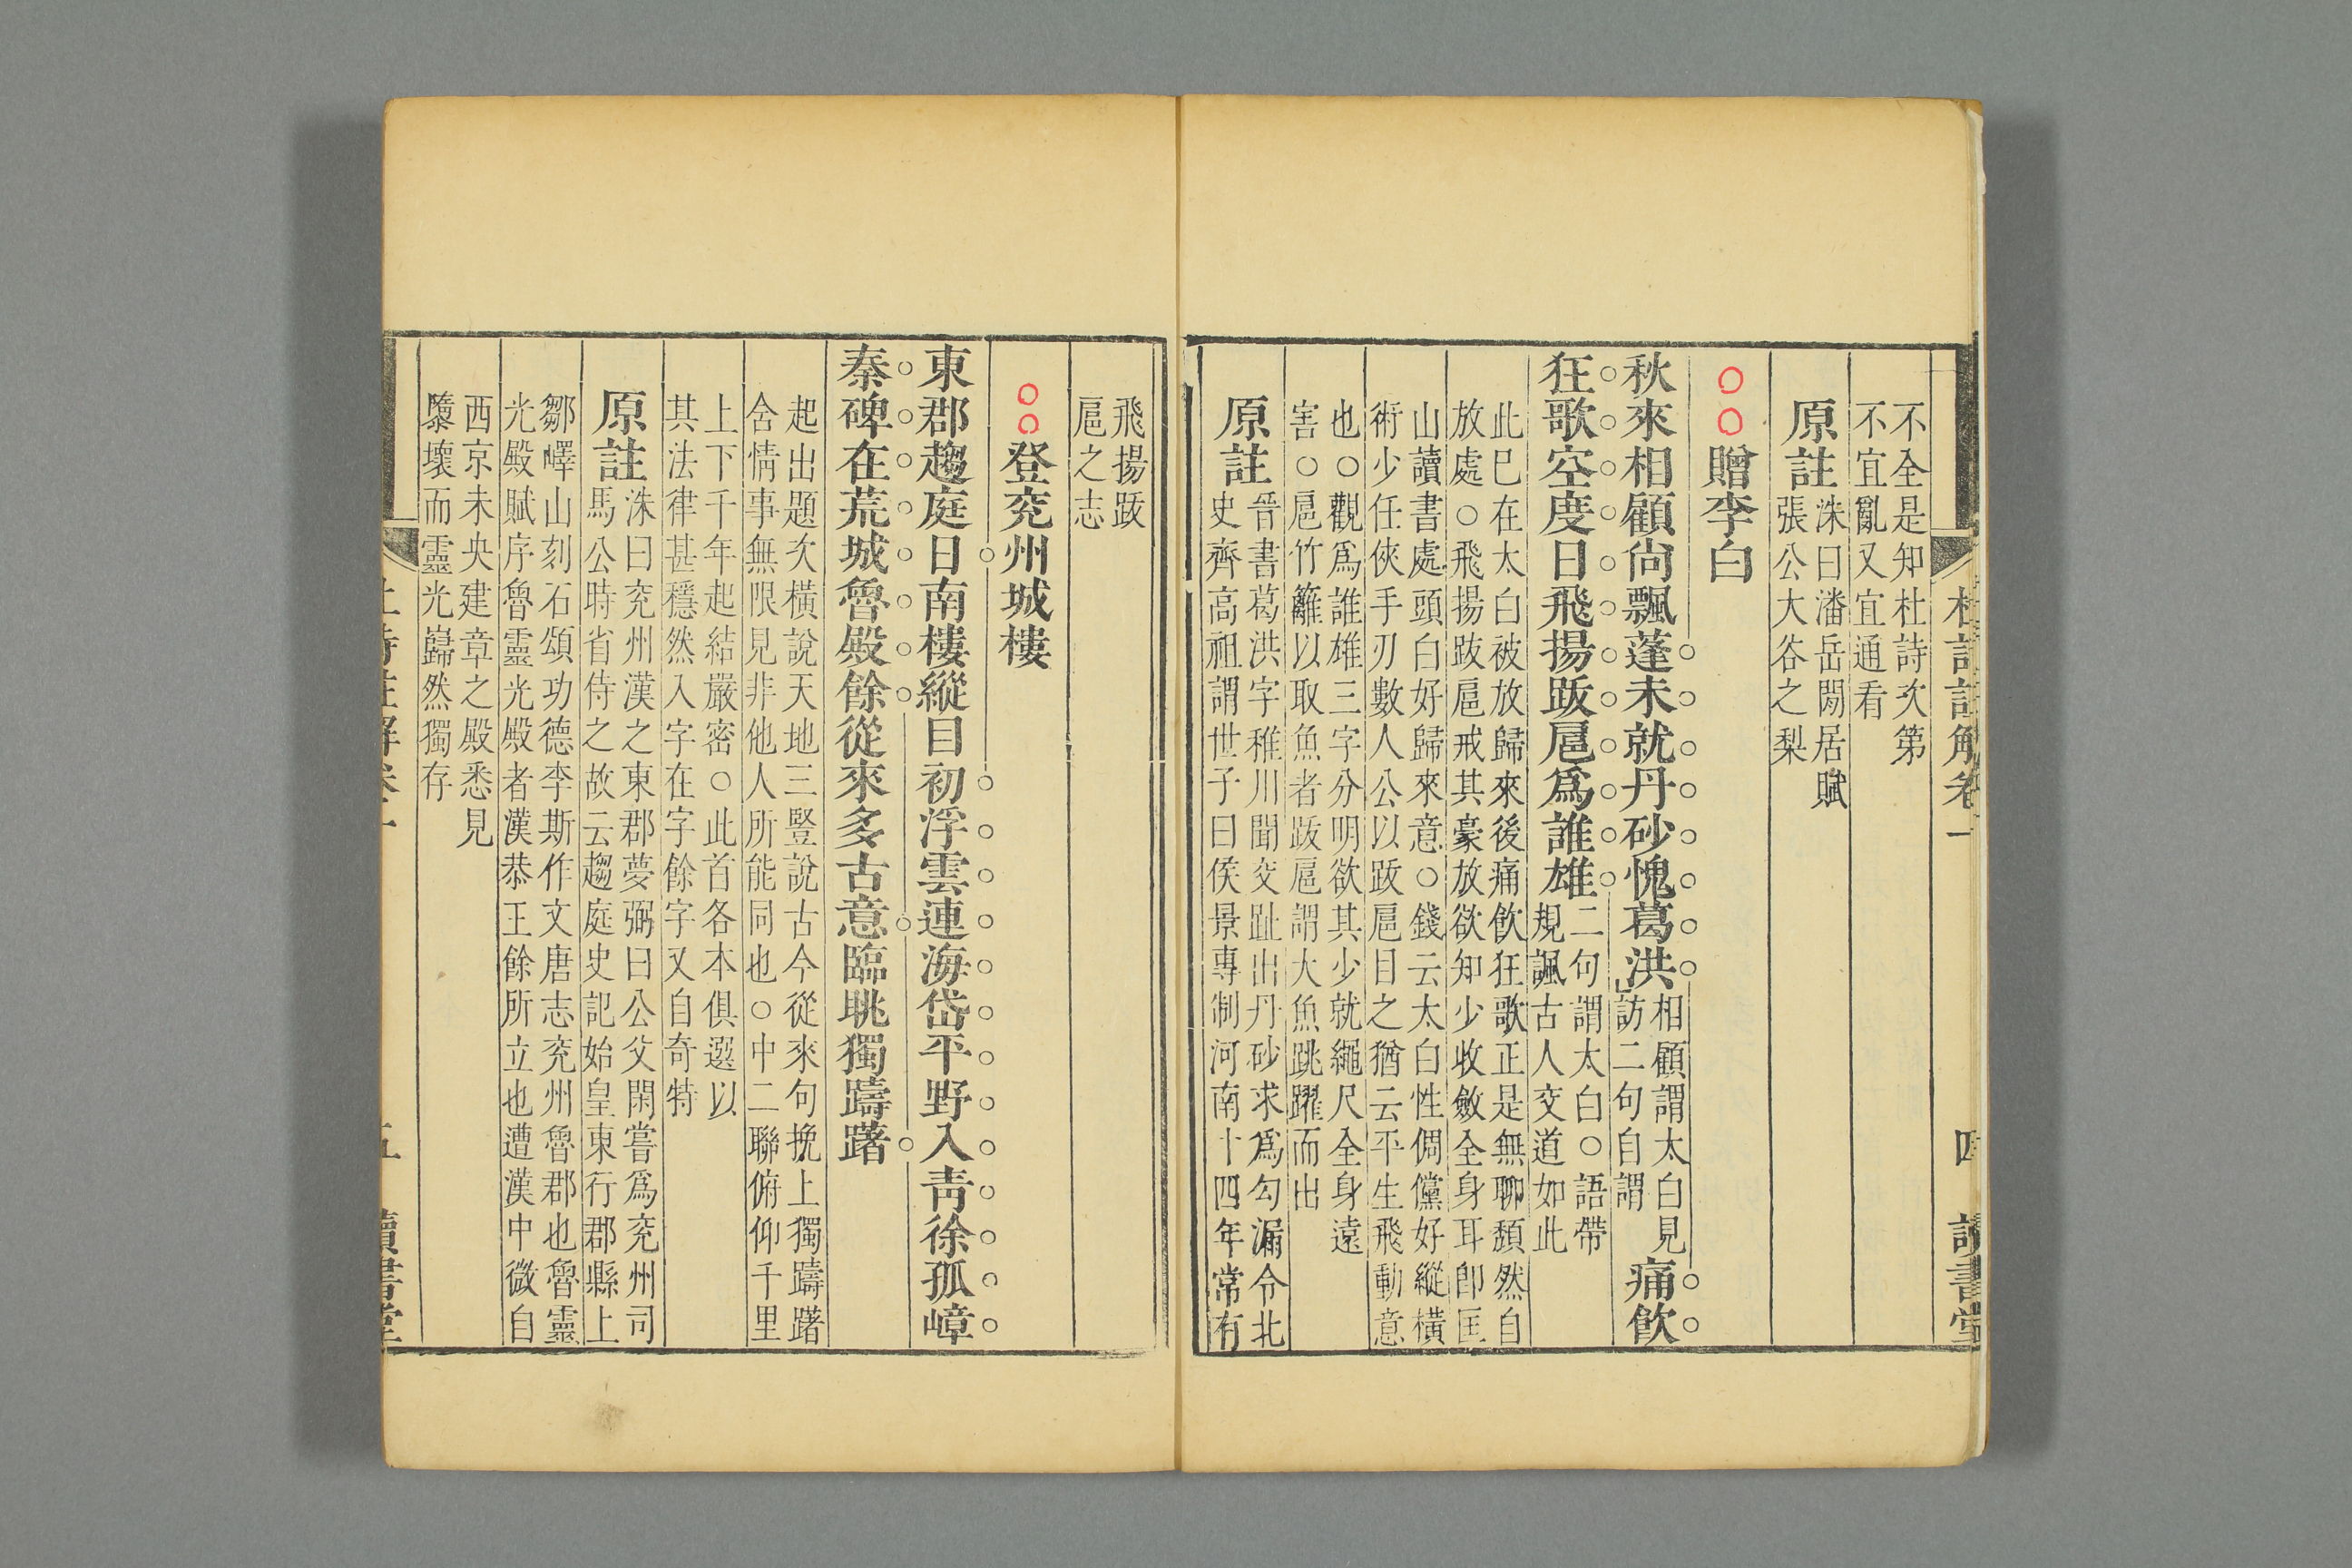 杜詩註解卷一 四 讀書堂
不全是知杜詩次第
不宜亂又宜通看
原註
洙曰潘岳閒居賦
張公大谷之梨
○○贈李白
秋來相顧尙飄蓬未就丹砂愧葛洪
相顧謂太白見
訪二句自謂
痛飮
狂歌空度日飛揚跋扈爲誰雄
二句謂太白○語帶
規諷古人交道如此
此巳在太白被放歸來後痛飮狂歌正是無聊頹然自
放處○飛揚跋扈戒其豪放欲知少收斂全身耳卽匡
山讀書處頭白好歸來意○錢云太白性倜儻好縱橫
術少任俠手刃數人公以跋扈目之猶云平生飛動意
也○觀爲誰雄三字分明欲其少就繩尺全身遠
害○扈竹籬以取魚者跋扈謂大魚跳躍而出
原註
晉書葛洪字稚川聞交趾出丹砂求爲勾漏令北
史齊高祖謂世子曰侯景專制河南十四年常有
飛揚跋
扈之志
○○登兖州城樓
東郡趨庭日南樓縱目初浮雲連海岱平野入靑徐孤嶂
秦碑在荒城魯殿餘從來多古意臨眺獨躊躇
起出題次橫說天地三豎說古今從來句挽上獨躊躇
舍情事無限見非他人所能同也○中二聯俯仰千里
上下千年起結嚴密○此首各本俱選以
其法律甚穩然入字在字餘字又自奇特
原註
洙曰兖州漢之東郡夢弼曰公父閑嘗爲兖州司
馬公時省侍之故云趨庭史記始皇東行郡縣上
鄒嶧山刻石頌功德李斯作文唐志兖州魯郡也魯靈
光殿賦序魯靈光殿者漢恭王餘所立也遭漢中微自
西京未央建章之殿悉見
隳壞而靈光巋然獨存
五 讀書堂